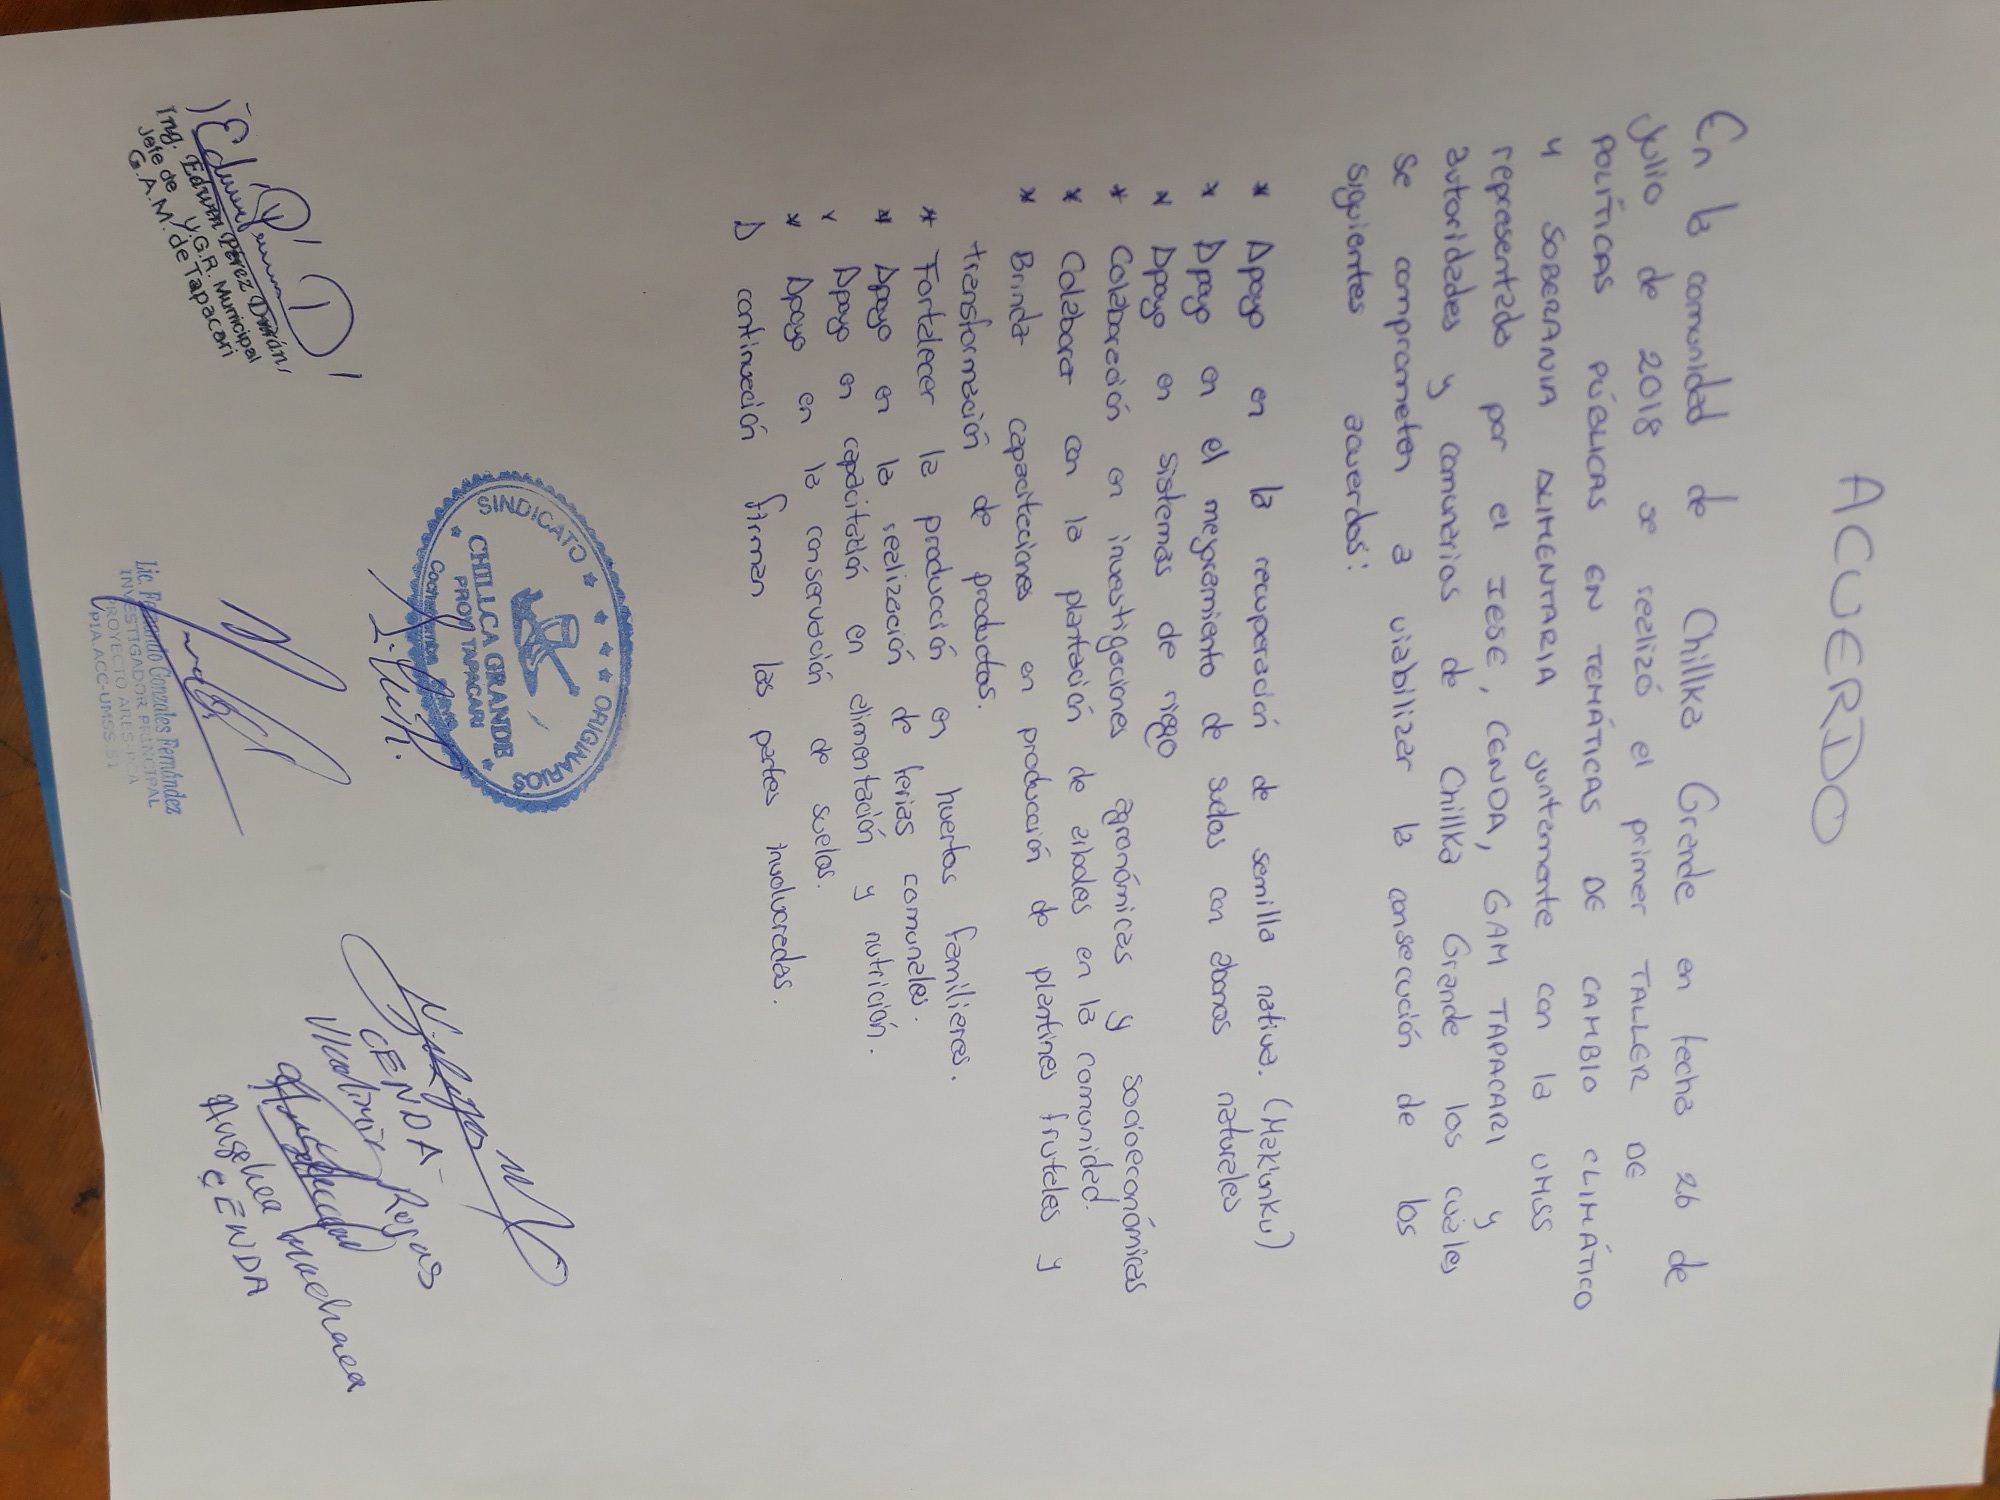 ACUERDO
En la comunidad de Chillka Grande en fecha 26 de
Julio de 2018 se realizó el primer TALLER DE
POLÍTICAS PÚBLICAS EN TEMÁTICAS DE CAMBIO CLIMÁTICO
Y SOBERANIA ALIMENTARIA juntamente con la UMSS
representado por el IESE, CENDA, GAM TAPACARI y
autoridades y comunarios de Chillka Grande los cuales
se comprometen a viabilizar la consecución de los
siguientes acuerdos:
* Apoyo en la recuperación de semilla nativa. (Mak'unku)
* Apoyo en el mejoramiento de suelos con abonos naturales
* Apoyo en sistemas de riego
* Colaboración en investigaciones agronómicas y socioeconómicas
* Colaborar con la plantación de arboles en la comunidad.
* Brindar capacitaciones en producción de plantines frutales y
transformación de productos.
* Fortalecer la producción en huertos familiares.
* Apoyo en la realización de ferias comunales.
* Apoyo en capacitación en alimentación y nutrición.
* Apoyo en la conservación de suelos.
A continuación firman las partes involucradas.
SINDICATO ORIGINARIOS
CHILLCA GRANDE
PROV. TAPACARI
Ing. Edwin Pérez Durán
Jefe de U.G.R. Municipal
G.A.M. de Tapacari
Lic. Fernando Gonzales Fernández
INVESTIGADOR PRINCIPAL
PROYECTO
PIA.ACC-UMSS.51
CENDA-
Vladimir Rojas
Angelica
CENDA